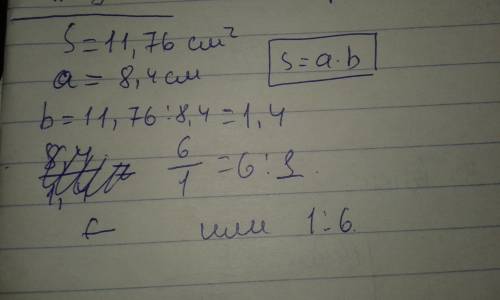 S=11,76 см²
a=8,4 см
S=a·b
b=11,76:8,4=1,4
6/1=6:1.
или 1:6.